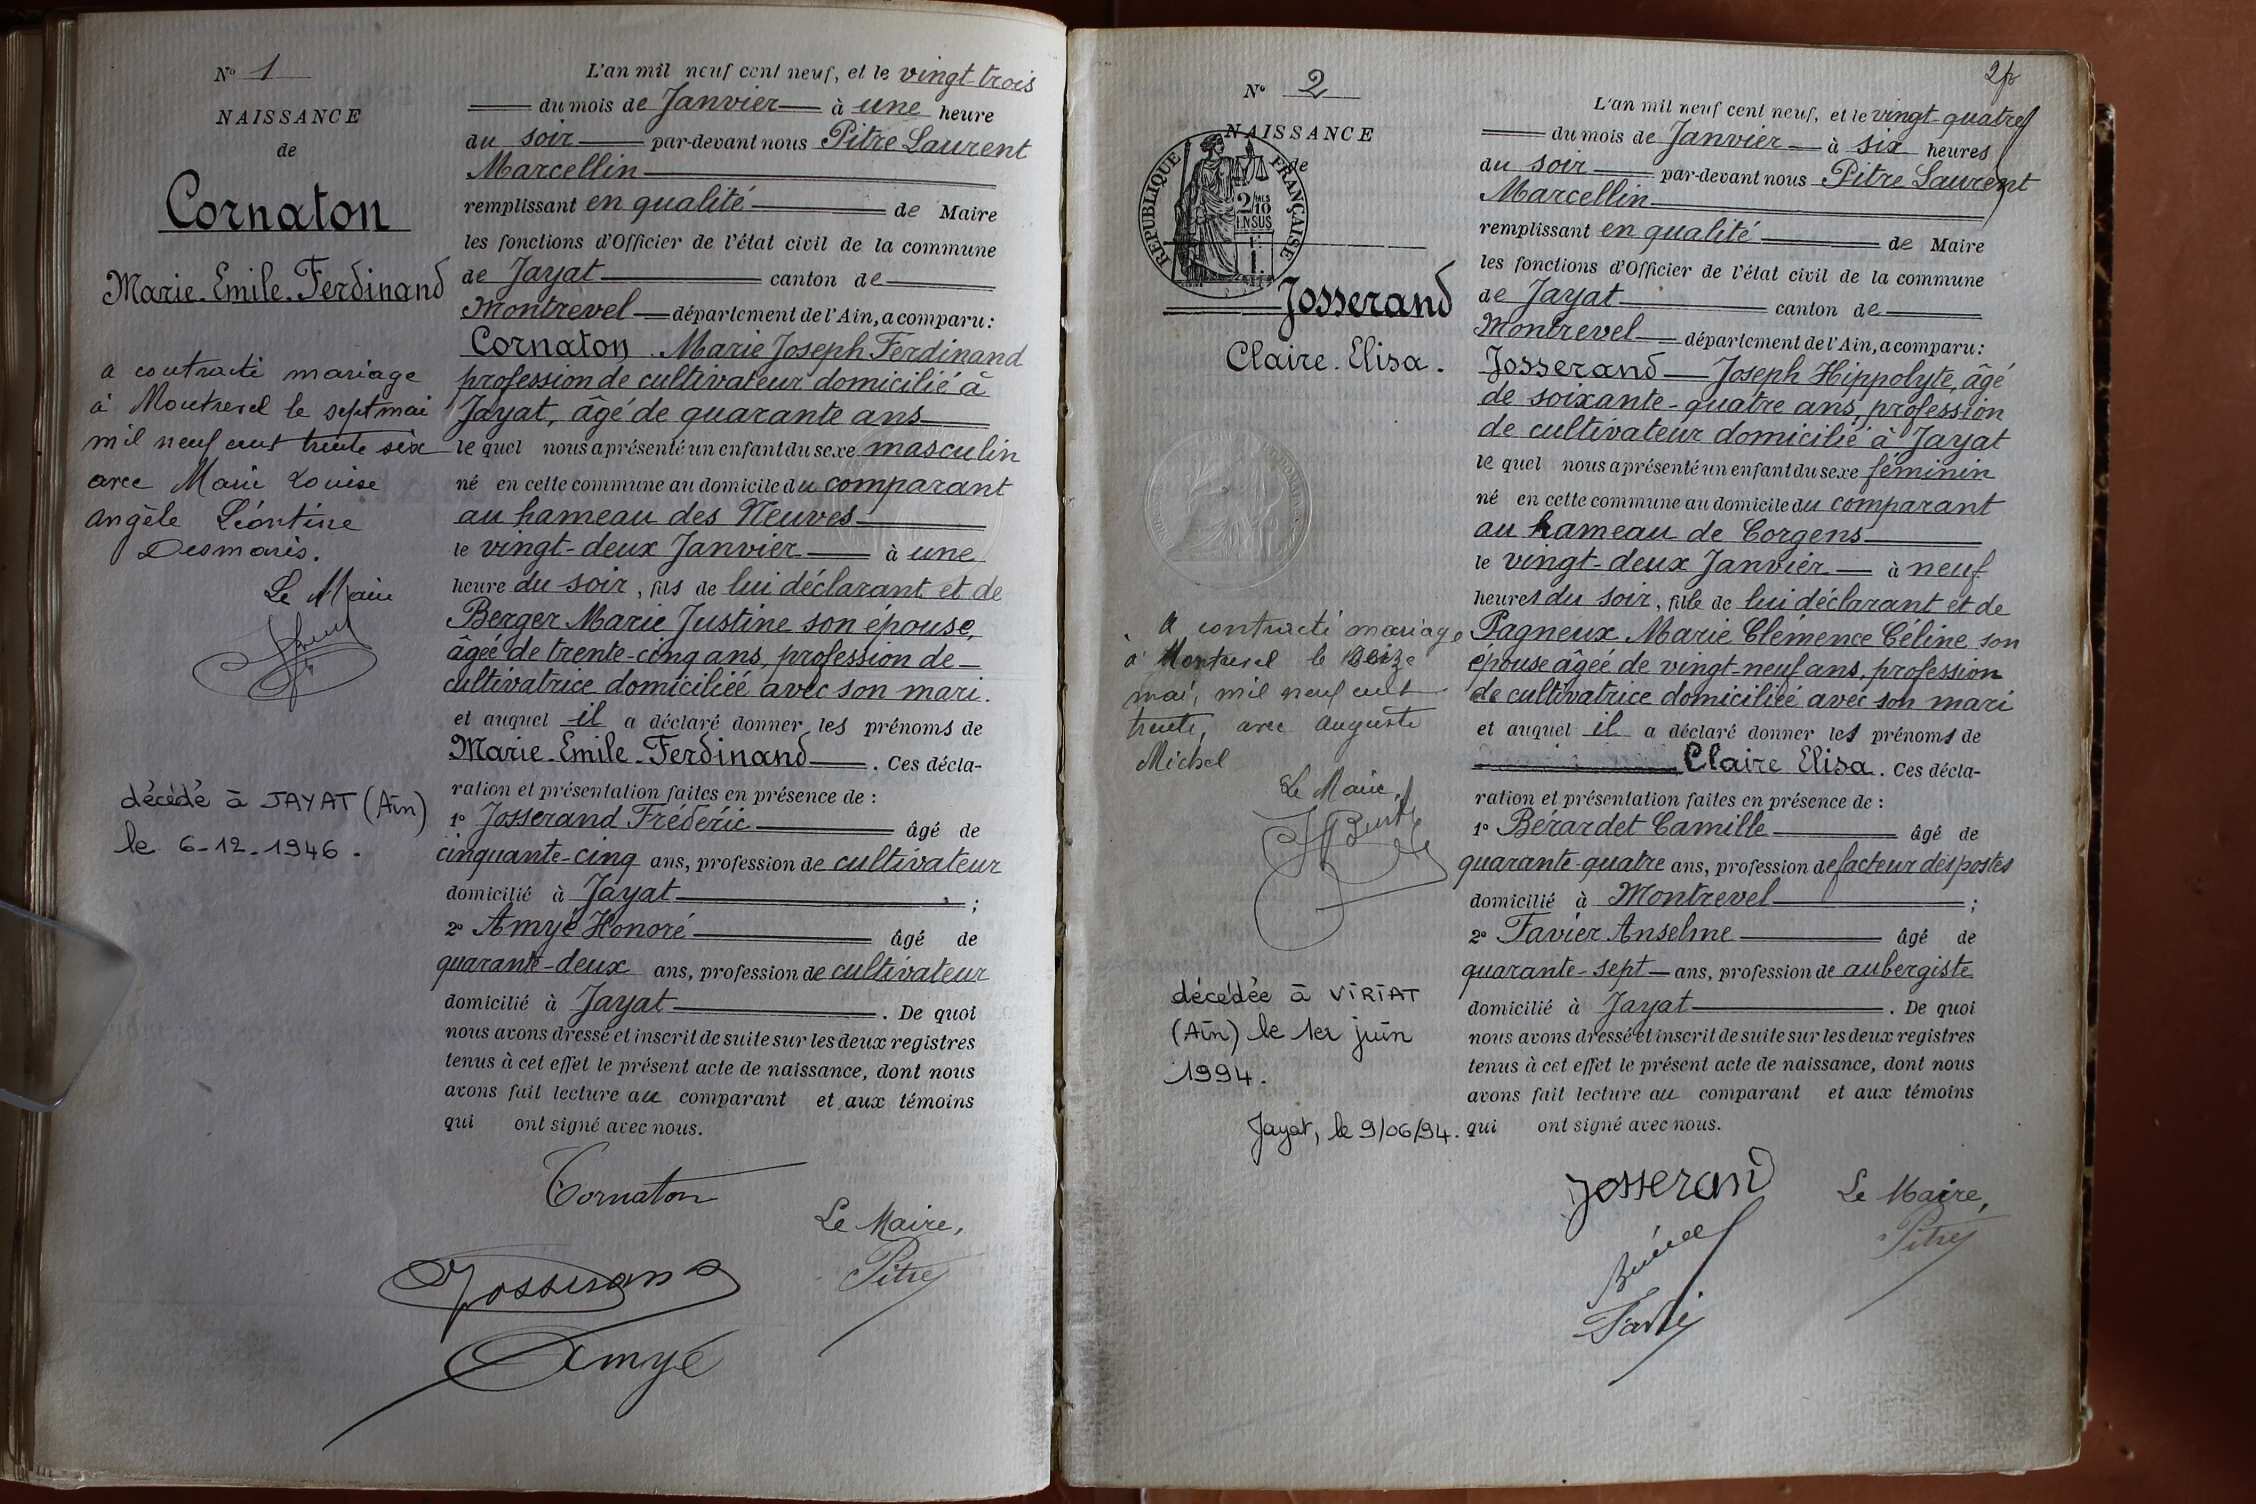 N° 1
NAISSANCE
de
Cornaton
Marie-Emile-Ferdinand
a contracté mariage
à Montrevel le sept mai
mil neuf cent trente six
avec Marie Louise
Angèle Léontine
Desmaris.
Le Maire
décédé à JAYAT (Ain)
le 6-12-1946.
L'an mil neuf cent neuf, et le vingt-trois
du mois de Janvier à une heure
du soir par-devant nous Pitre Laurent
Marcellin
remplissant en qualité de Maire
les fonctions d'Officier de l'état civil de la commune
de Jayat canton de
Montrevel département de l'Ain, a comparu :
Cornaton Marie Joseph Ferdinand
profession de cultivateur domicilié à
Jayat, âgé de quarante ans
le quel nous a présenté un enfant du sexe masculin
né en cette commune au domicile du comparant
au hameau des Neuves
le vingt-deux Janvier à une
heure du soir, fils de lui déclarant et de
Berger Marie Justine son épouse,
âgée de trente-cinq ans, profession de
cultivatrice domiciliée avec son mari.
et auquel il a déclaré donner les prénoms de
Marie-Emile-Ferdinand. Ces décla-
ration et présentation faites en présence de :
1° Josserand Fréderic âgé de
cinquante-cinq ans, profession de cultivateur
domicilié à Jayat ;
2° Amyé Honoré âgé de
quarante-deux ans, profession de cultivateur
domicilié à Jayat. De quoi
nous avons dressé et inscrit de suite sur les deux registres
tenus à cet effet le présent acte de naissance, dont nous
avons fait lecture au comparant et aux témoins
qui ont signé avec nous.
Cornaton
Le Maire,
Pitre
Josserand
Amyé
2
N° 2
NAISSANCE
de
REPUBLIQUE FRANÇAISE
2/10
EN SUS
Josserand
Claire-Elisa.
A contracté mariage
à Montrevel le treize
mai, mil neuf cent
trente, avec Auguste
Michel
Le Maire,
décédée à VIRIAT
(Ain) le 1er juin
1994.
Jayat, le 9/06/94.
L'an mil neuf cent neuf, et le vingt-quatre
du mois de Janvier à six heures
du soir par-devant nous Pitre Laurent
Marcellin
remplissant en qualité de Maire
les fonctions d'Officier de l'état civil de la commune
de Jayat canton de
Montrevel département de l'Ain, a comparu :
Josserand Joseph Hippolyte, âgé
de soixante-quatre ans, profession
de cultivateur domicilié à Jayat
le quel nous a présenté un enfant du sexe féminin
né en cette commune au domicile du comparant
au hameau de Corgens
le vingt-deux Janvier à neuf
heures du soir, fille de lui déclarant et de
Pagneux Marie Clémence Céline son
épouse âgée de vingt-neuf ans, profession
de cultivatrice domiciliée avec son mari
et auquel il a déclaré donner les prénoms de
Claire Elisa. Ces décla-
ration et présentation faites en présence de :
1° Bérardet Camille âgé de
quarante-quatre ans, profession de facteur des postes
domicilié à Montrevel ;
2° Favier Anselme âgé de
quarante-sept ans, profession de aubergiste
domicilié à Jayat. De quoi
nous avons dressé et inscrit de suite sur les deux registres
tenus à cet effet le présent acte de naissance, dont nous
avons fait lecture au comparant et aux témoins
qui ont signé avec nous.
Josserand
Le Maire,
Pitre